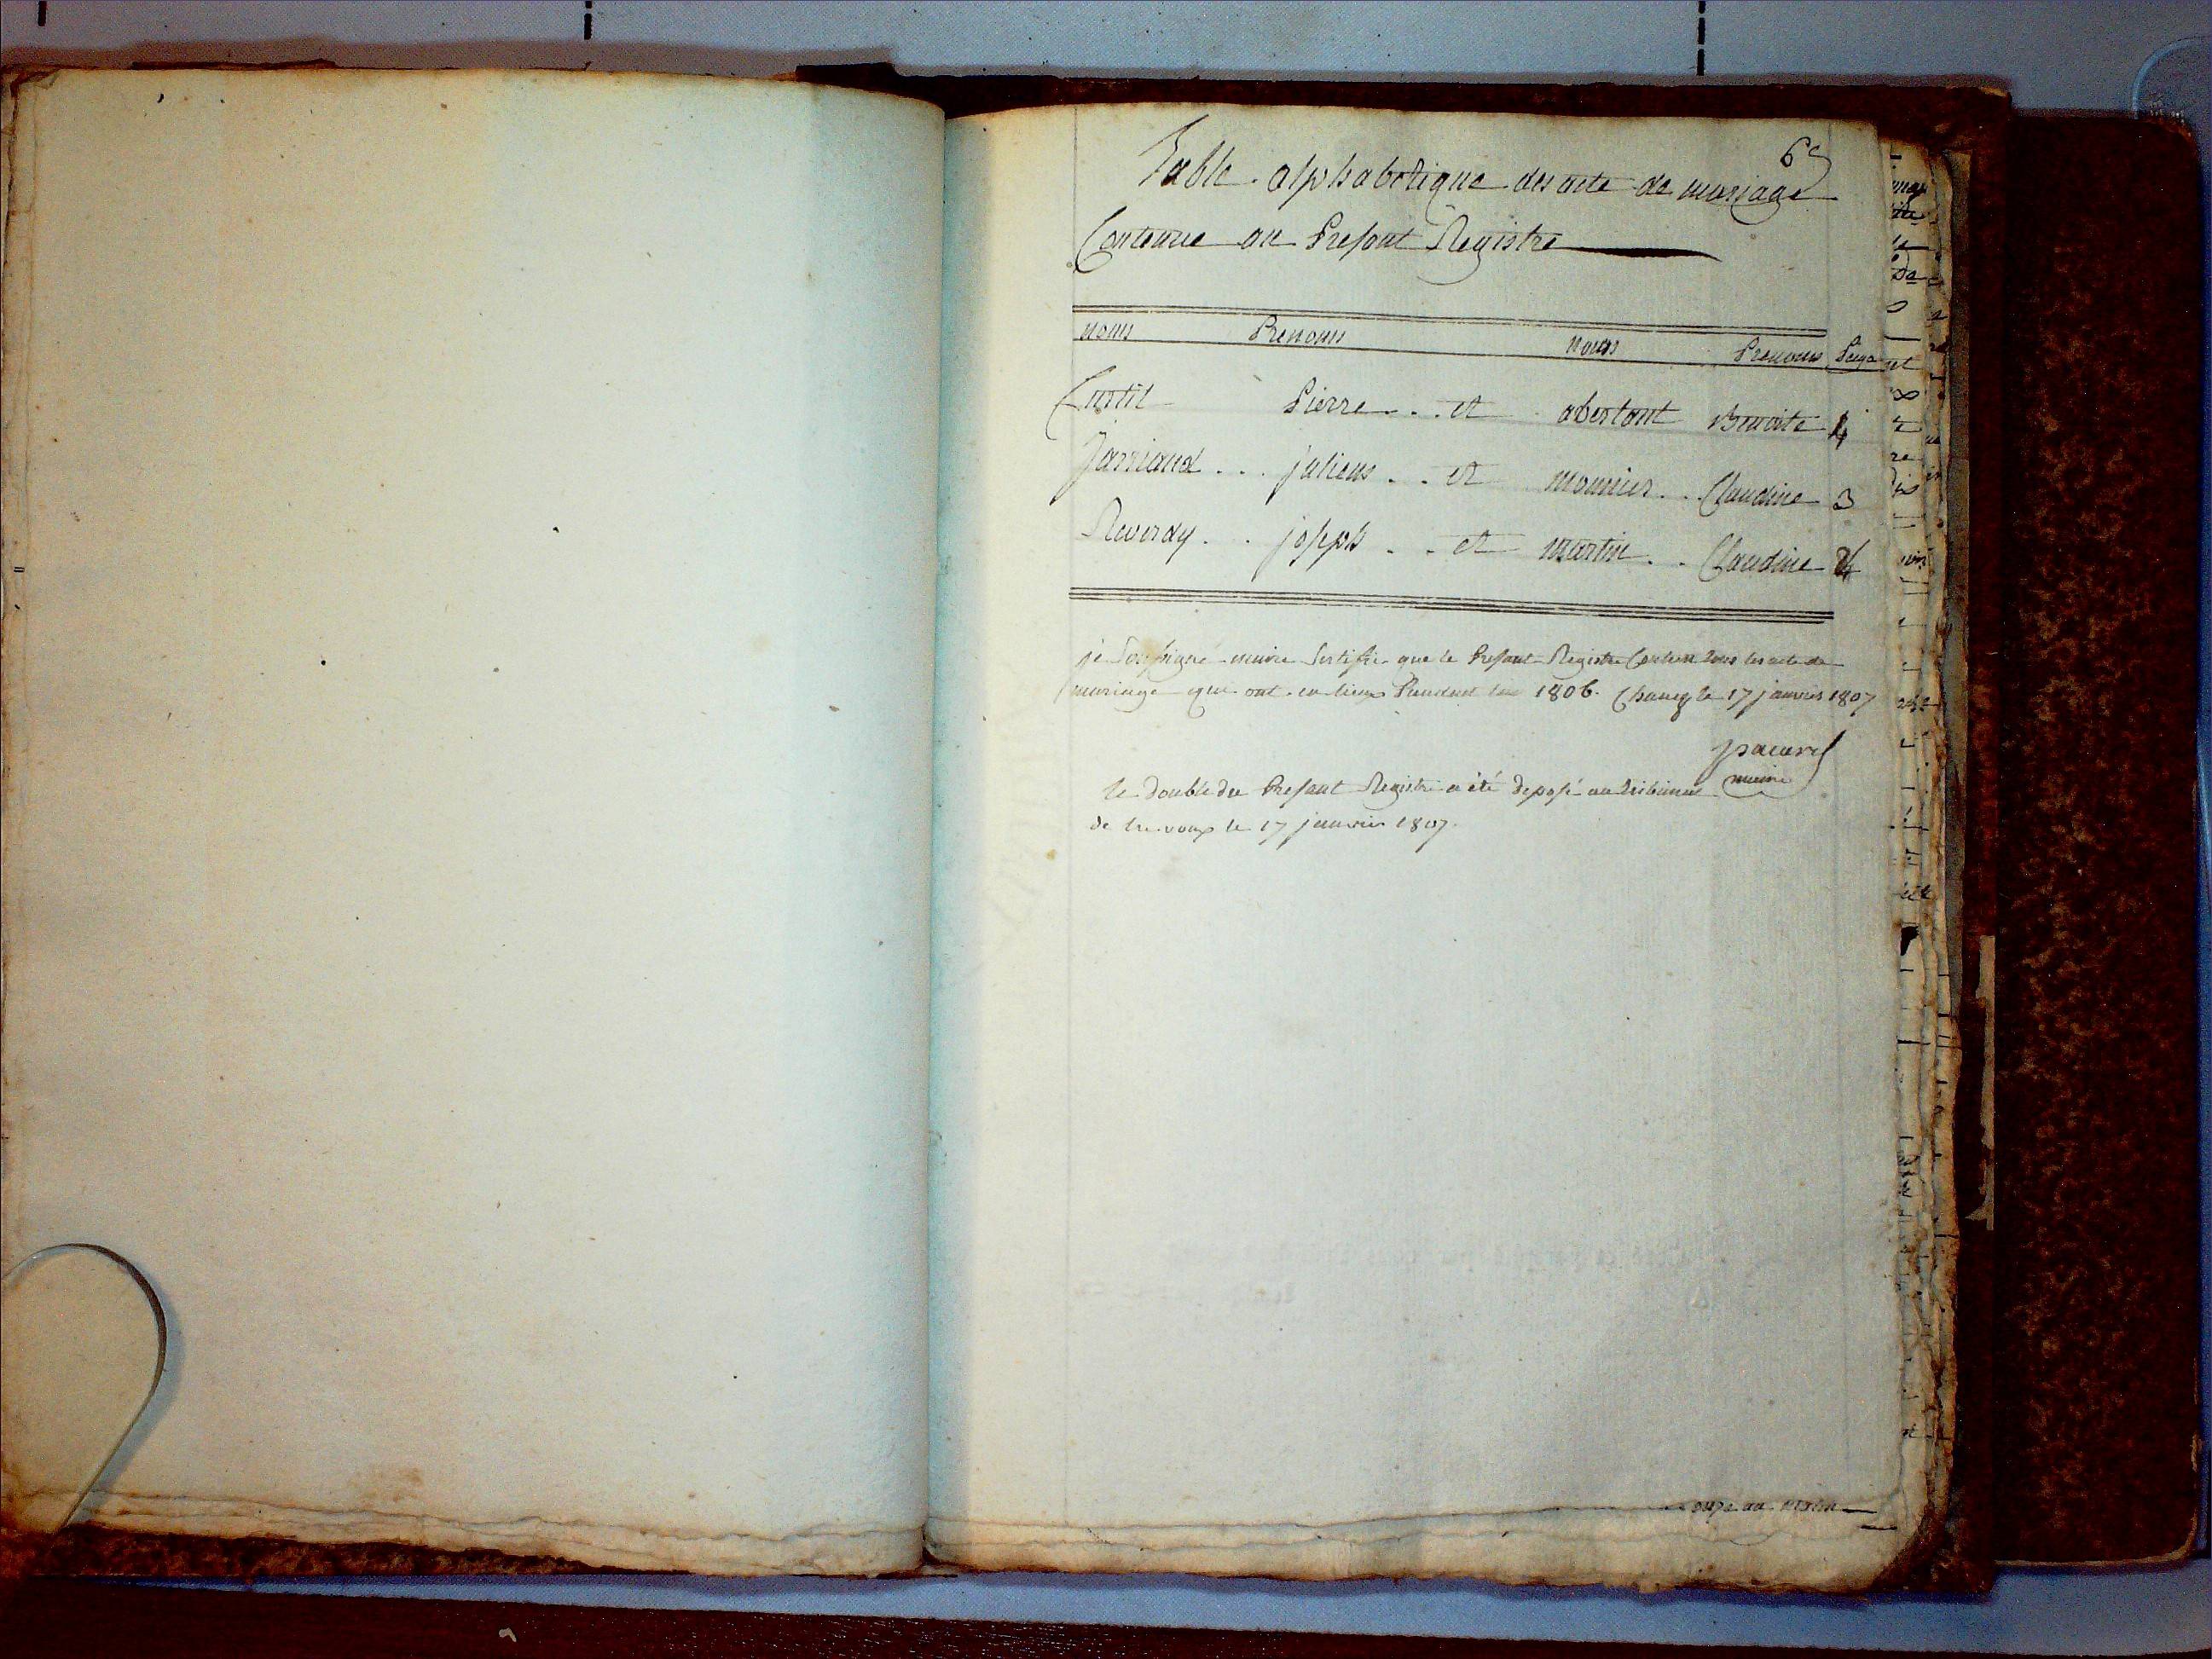 6
Table alphabetique des acte de mariage
Contenue au Presant Registre
noms Prenoms noms Prenoms Page
Curtil Pierre .. et abertont Benoite 4
Jarriand ... juliens .. et mounier .. Claudine 3
Reverdy .. joseph .. et martin .. Claudine
je Soussigné maire Sertifie que le Presant Registre Contien tous les acte de
mariage qui ont eu lieux Pendant lan 1806. Chaneg le 17 janvier 1807
maire
le double du Presant Registre a été deposé au tribunal
de trevoux le 17 janvier 1807.